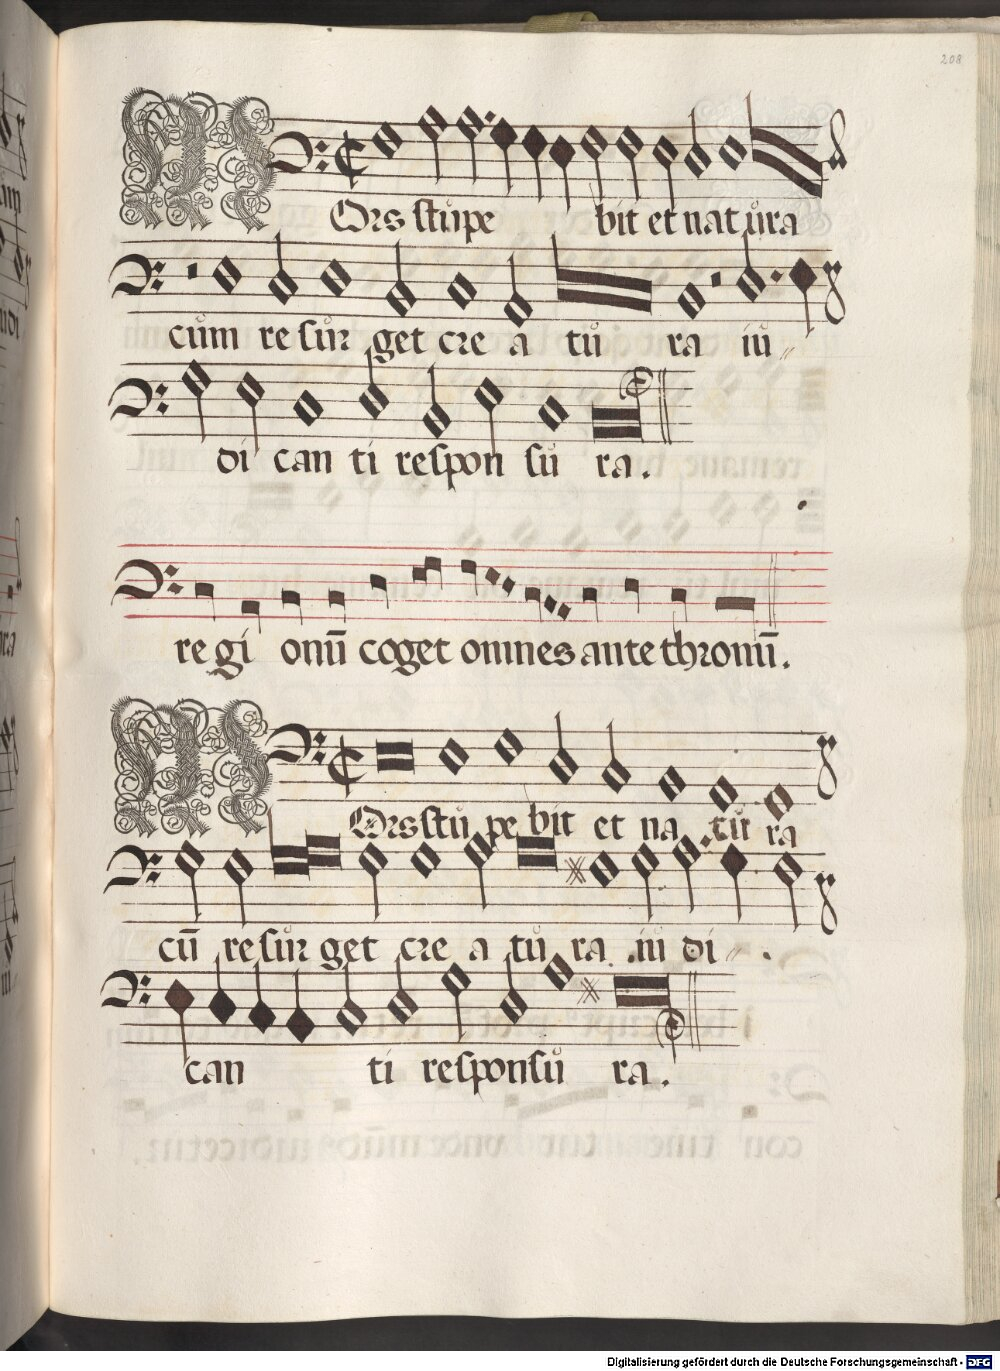 208
MOrs stupe bit et natura
cum resurget cre a tu ra iu
dicanti respon su ra.
regi onū coget omnes ante thronū.
MOrs stu pe bit et na tu ra
cū resurget cre a tu ra iu di
can ti responsu ra.
Digitalisierung gefördert durch die Deutsche Forschungsgemeinschaft - DFG